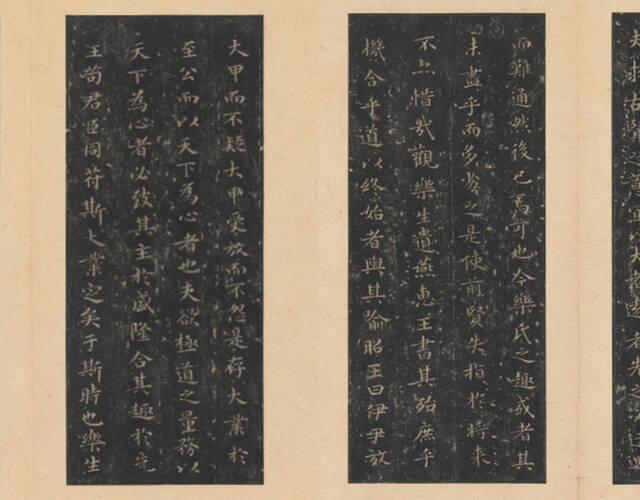 而難通然後已焉可也今樂氏之趣或者其
未盡乎而多劣之是使前賢失指於將来
不亦惜哉觀樂生遺燕惠王書其殆庶乎
機合乎道以終始者與其喻昭王曰伊尹放
大甲而不疑大甲受放而不怨是存大業於
至公而以天下為心者也夫欲極道之量務以
天下為心者必致其主於盛隆合其趣於先
王苟君臣同符斯大業定矣于斯時也樂生